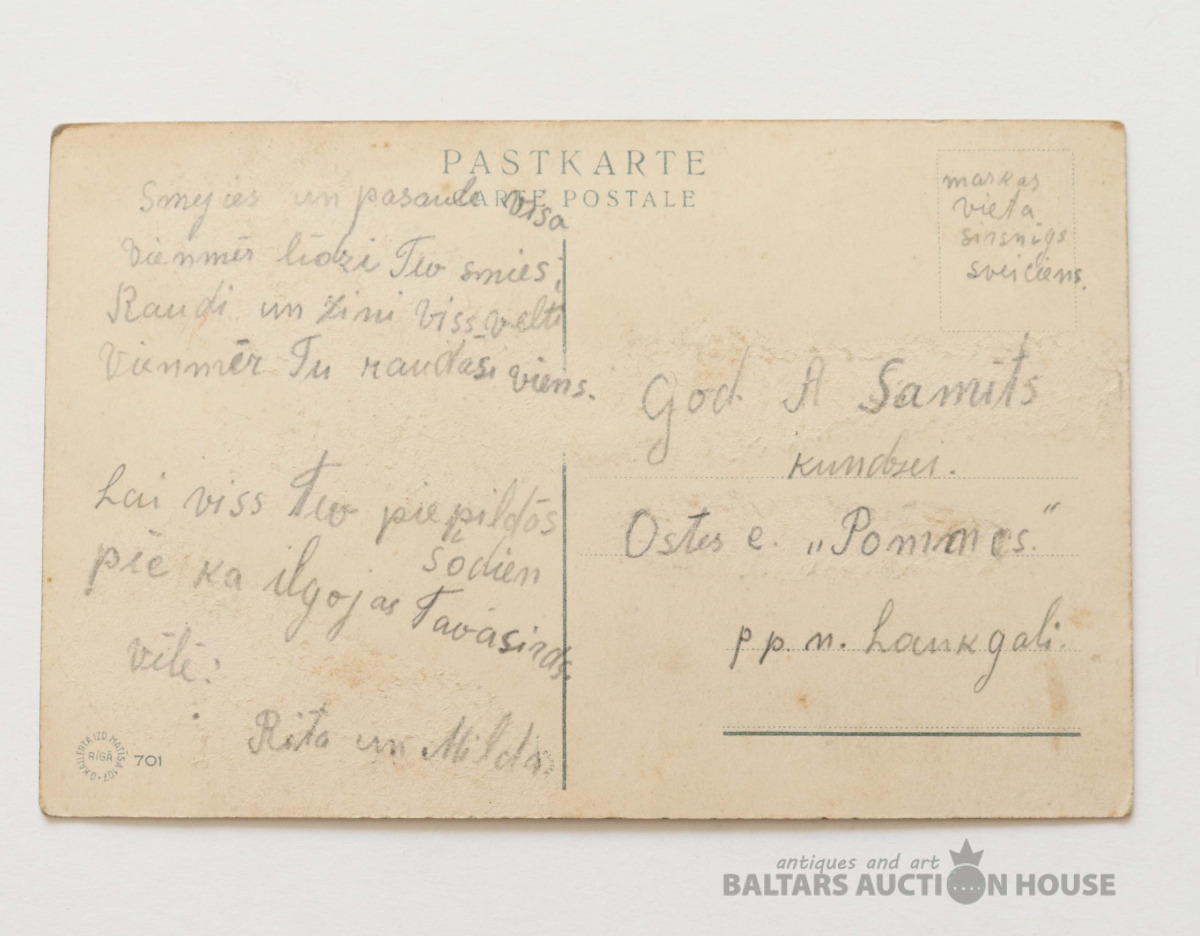 PASTKARTE
CARTE POSTALE
Smejies un pasaule visa
Vienmēr līdzi Tev smies;
Raudi un zini viss velti
Vienmēr Tu raudāsi viens.
Lai viss Tev piepildās
šodien
pie ka ilgojas Tavā sirds.
vēlē:
Rita un Milda.
markas
vieta
sirsnīgs
sveiciens.
God. A Samits
kundzei.
Ostes e. „Pommes."
pp. n. Laukgali.
O.KELLERTA IZD. MATĪSA 107
RĪGĀ
701
antiques and art
BALTARS AUCTION HOUSE